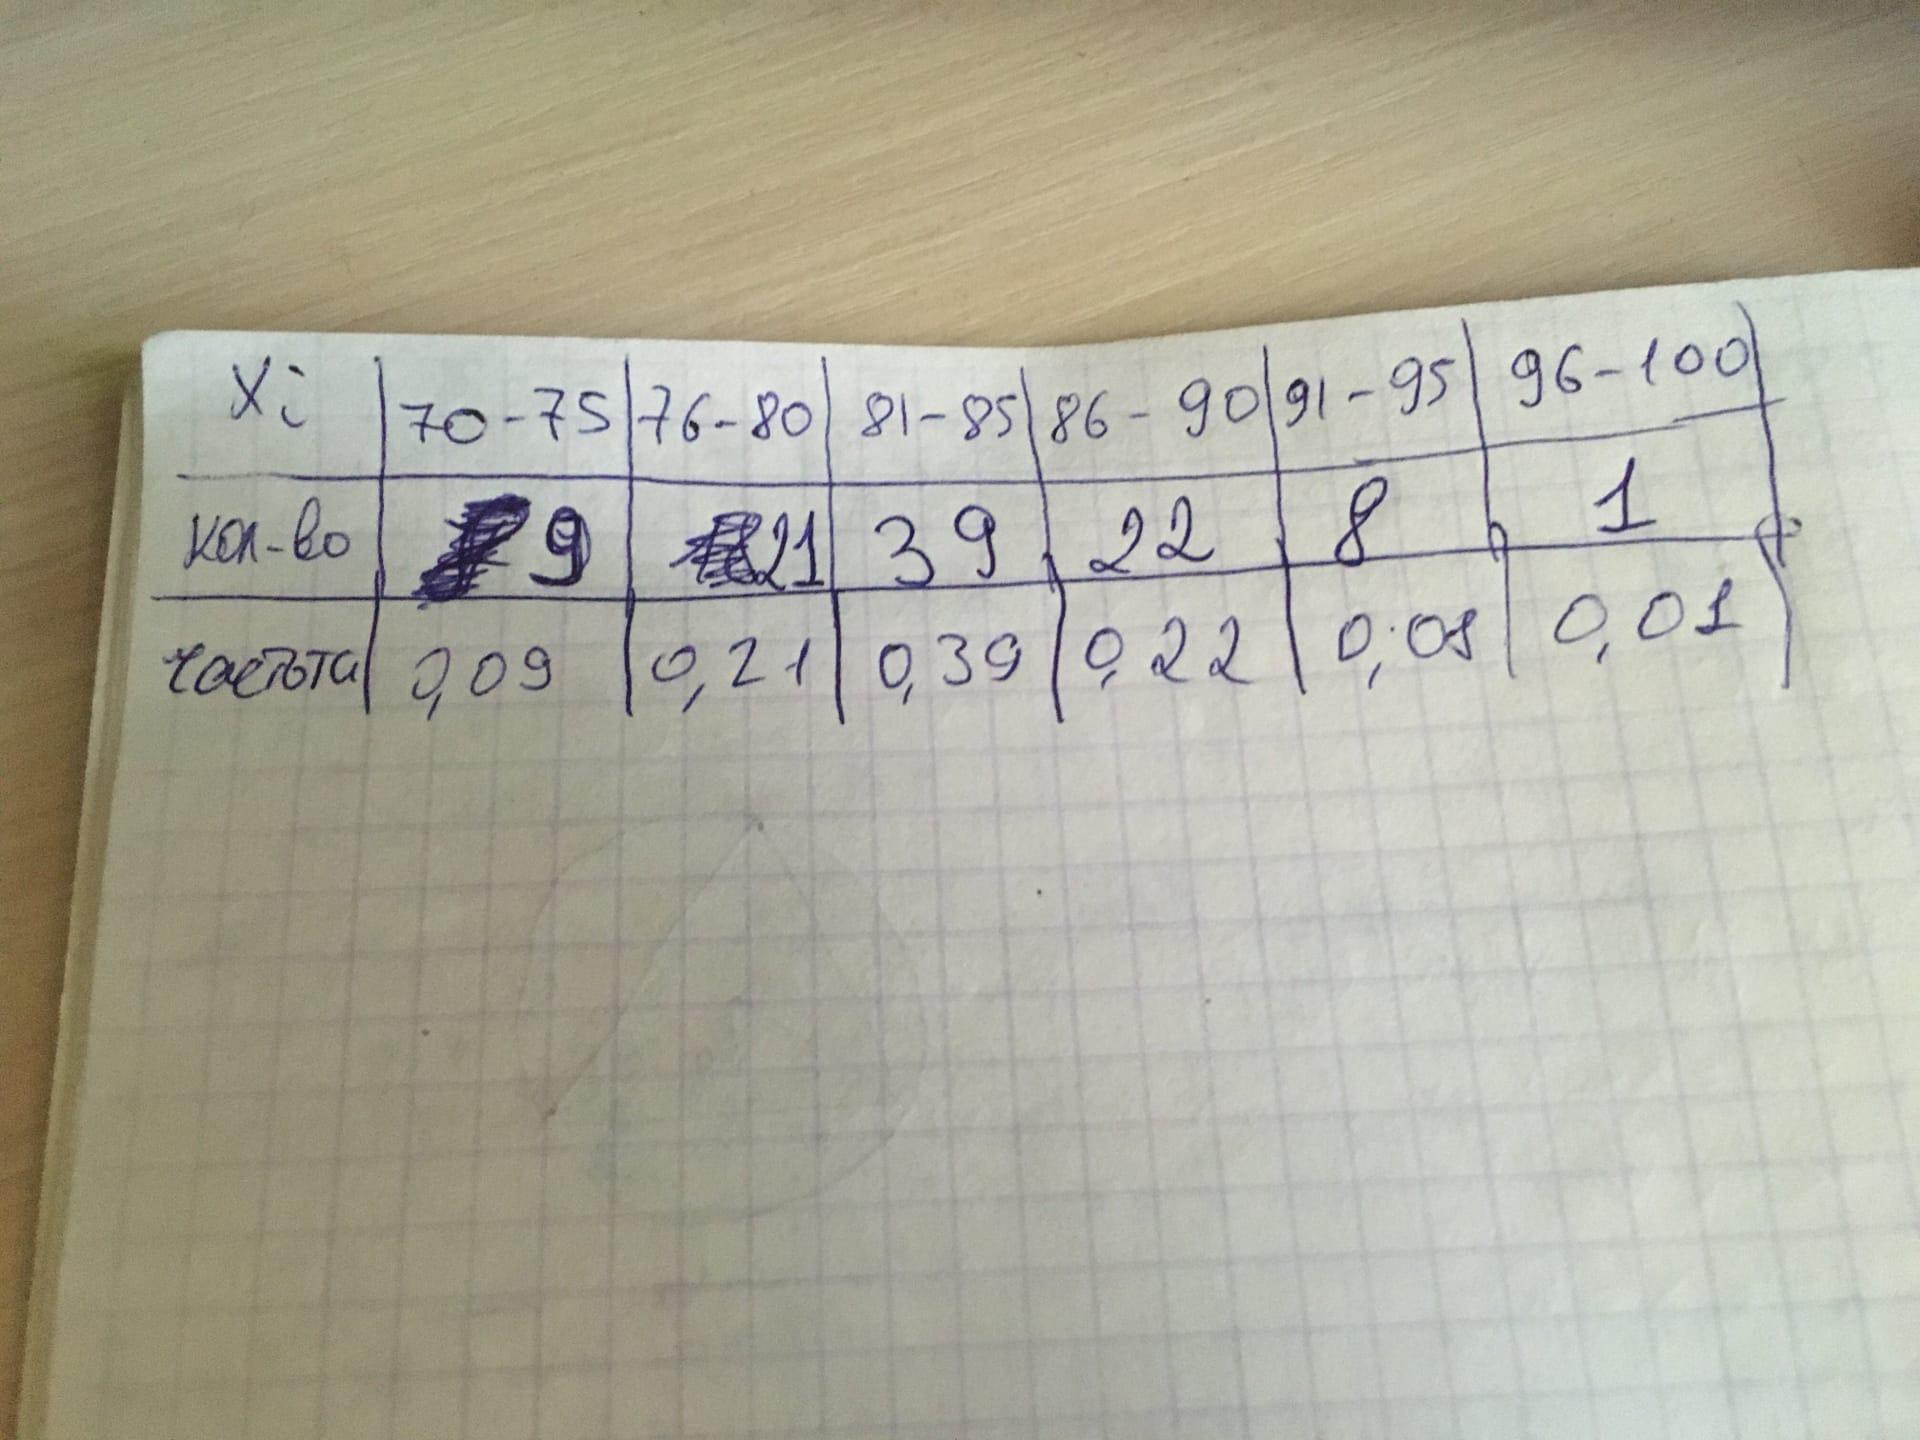 Xi 70-75 76-80 81-85 86-90 91-95 96-100
кол-во 9 21 39 22 8 1
частота 0,09 0,21 0,39 0,22 0,08 0,01